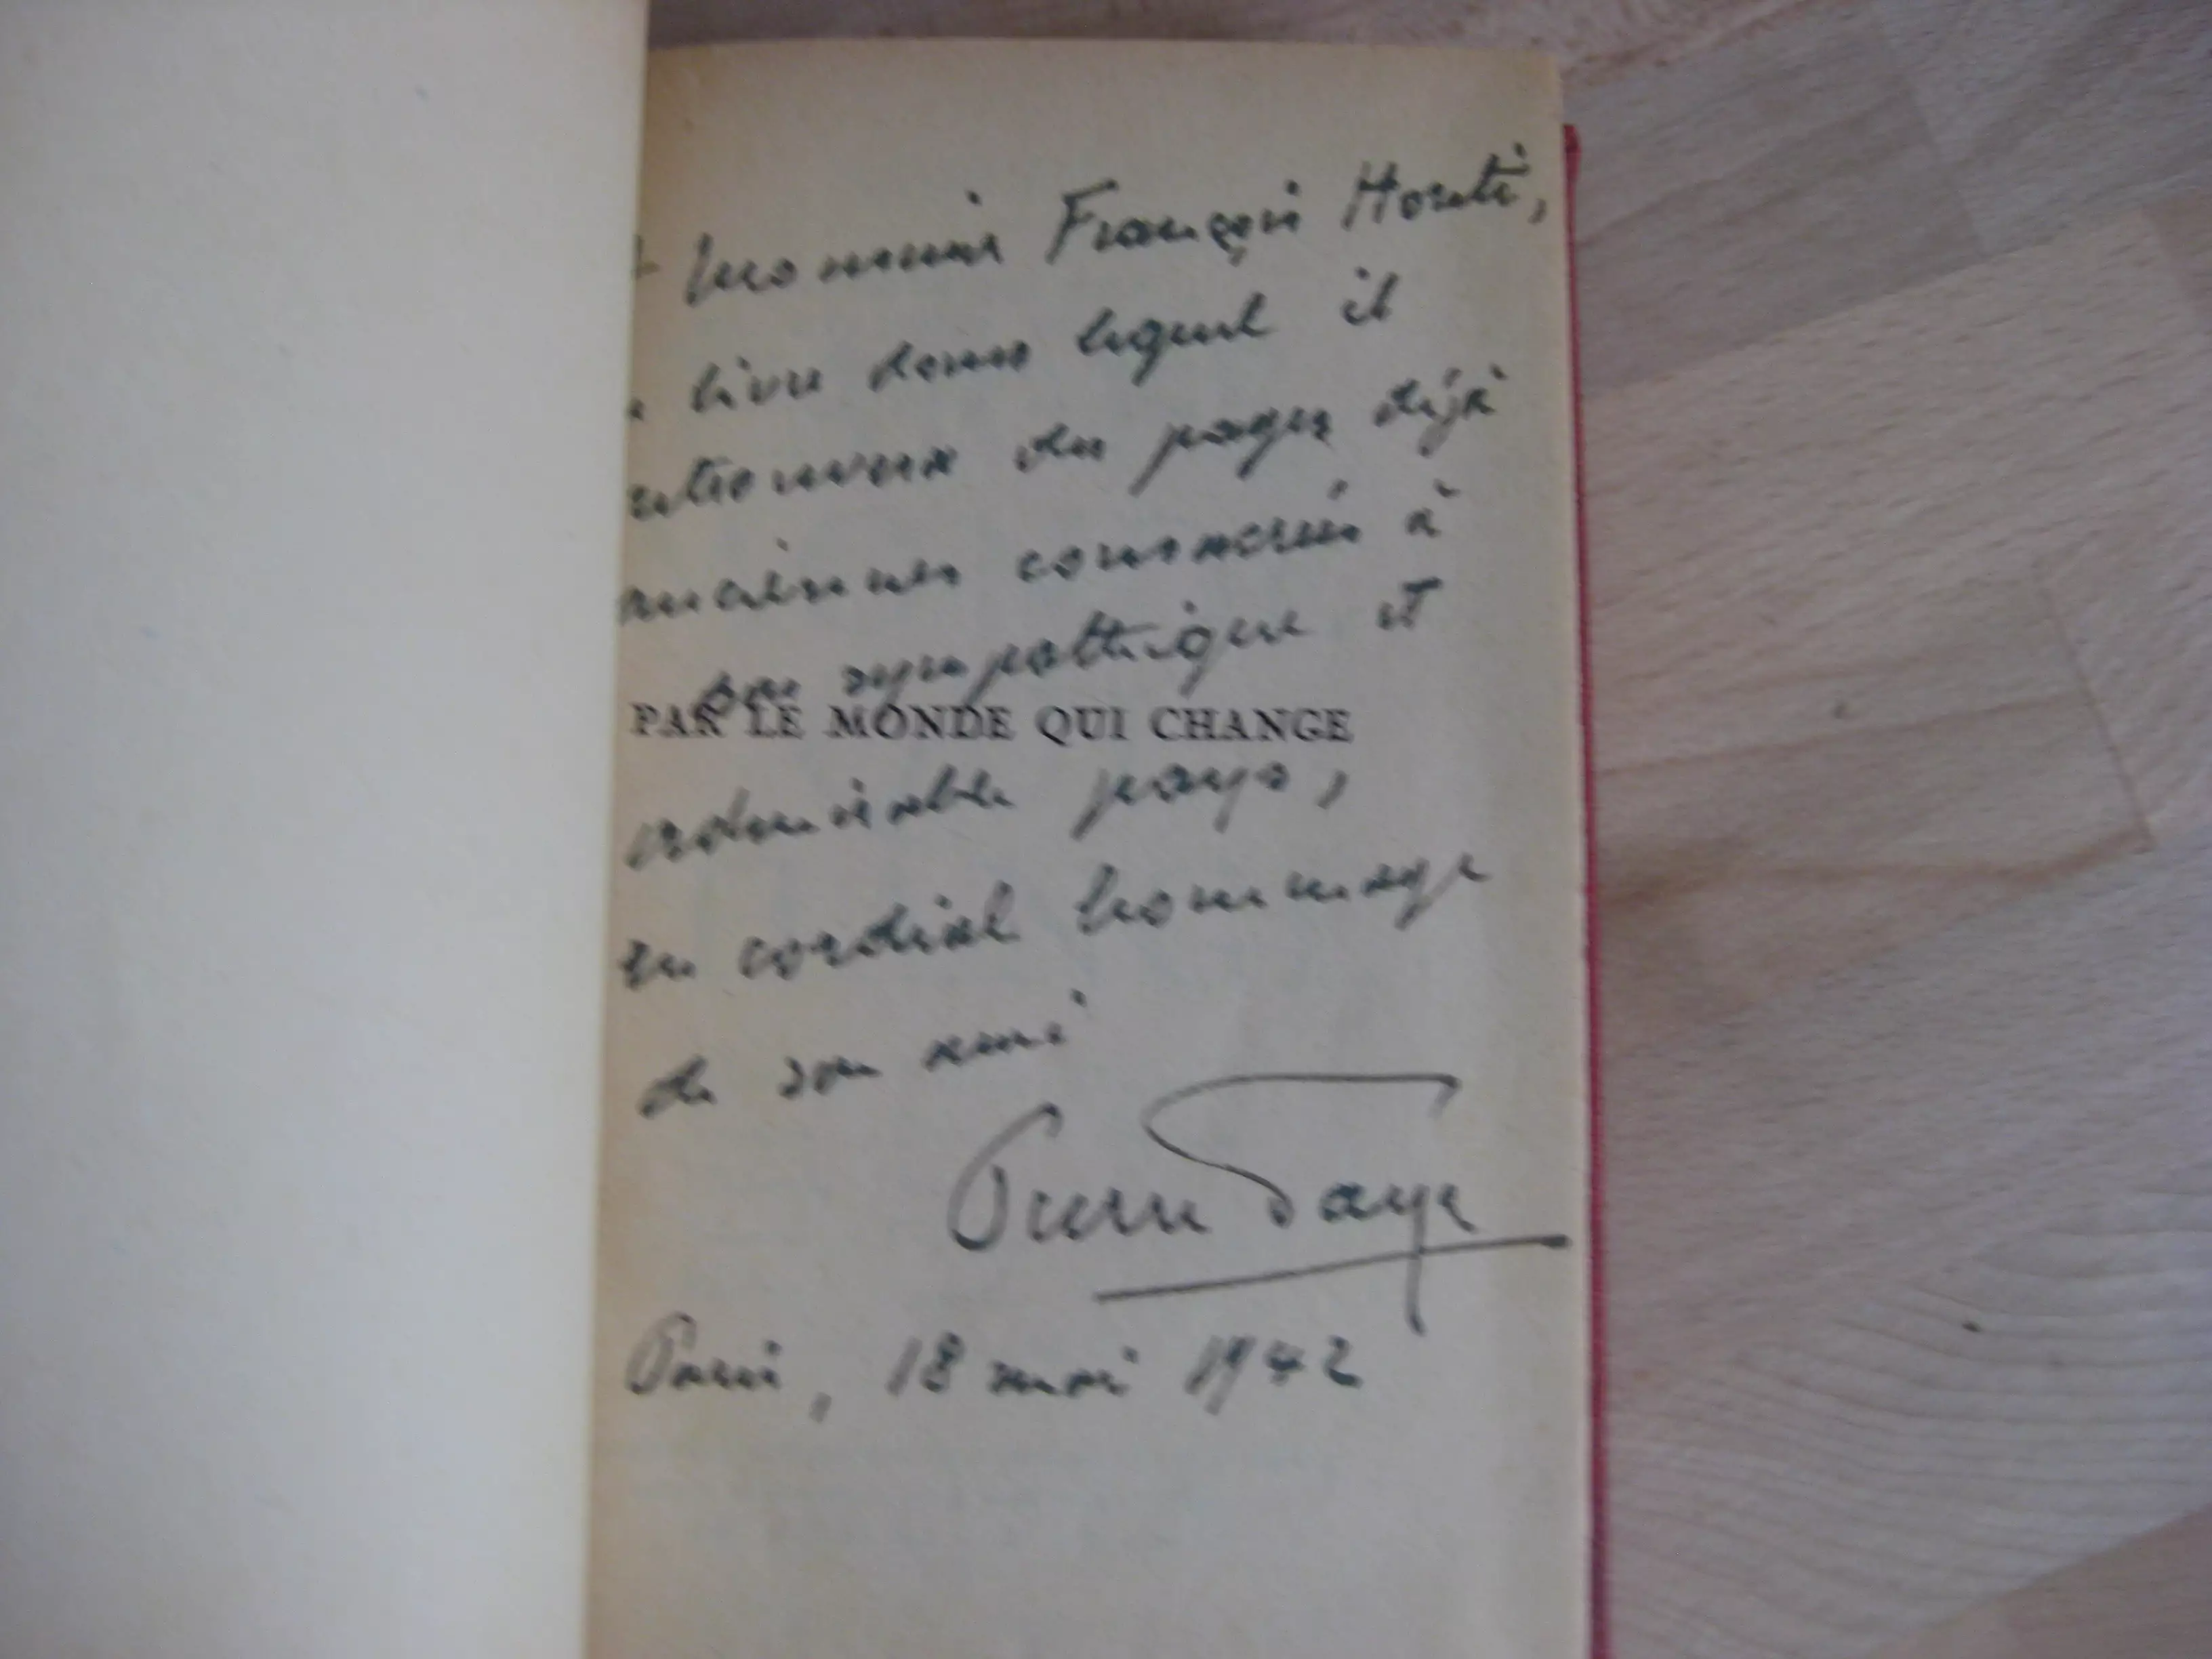 Monsieur François
livre dans lequel il
retrouvera des pages déjà
anciennes consacrées à
son sympathique et
PAR LE MONDE QUI CHANGE
admirable pays,
en cordial hommage
de son ami
Pierre Faye
Paris, 18 mai 1942